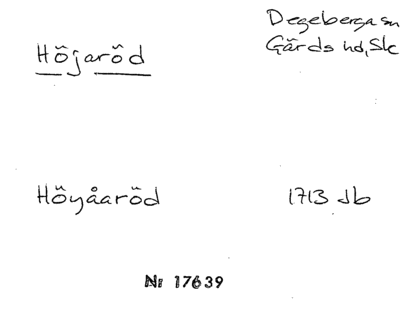 Degeberga sn
Höjaröd
Gärds hd, Sk
Höyåaröd 1713 Jb
Nr 17639